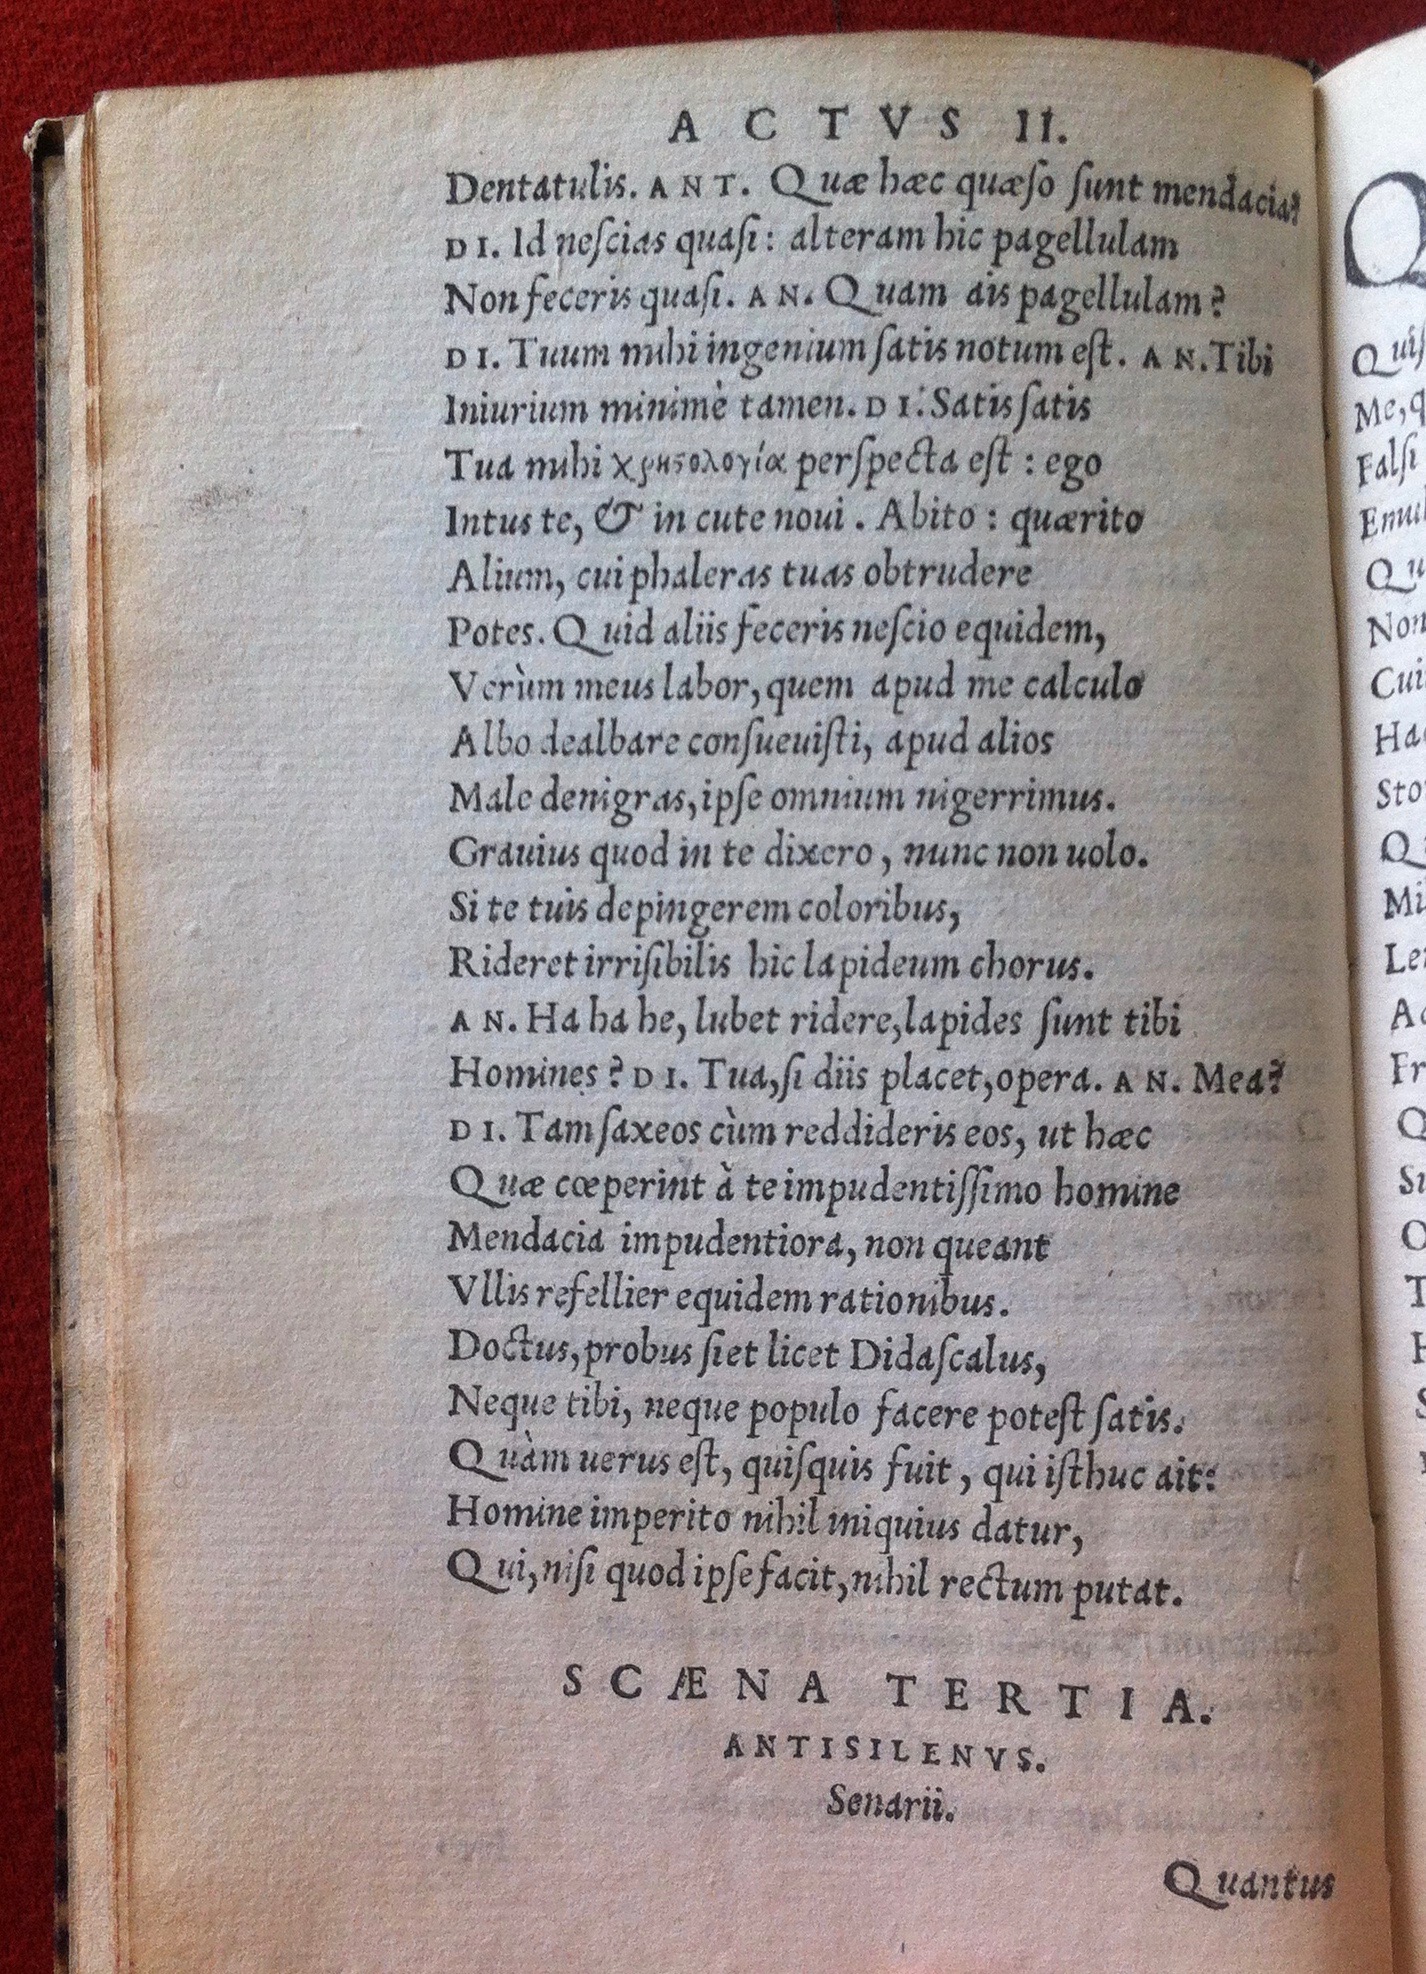 ACTVS II.
Dentatulis. ANT. Quæ hæc quæſo ſunt mendacia?
DI. Id neſcias quaſi: alteram hic pagellulam
Non feceris quaſi. AN. Quam ais pagellulam?
DI. Tuum mihi ingenium ſatis notum eſt. AN. Tibi
Iniurium minimè tamen. DI. Satis ſatis
Tua mihi χρηϛολογία perſpecta eſt: ego
Intus te, & in cute noui. Abito: quærito
Alium, cui phaleras tuas obtrudere
Potes. Quid aliis feceris neſcio equidem,
Verùm meus labor, quem apud me calculo
Albo dealbare conſueuiſti, apud alios
Male denigras, ipſe omnium nigerrimus.
Grauius quod in te dixero, nunc non uolo.
Si te tuis depingerem coloribus,
Rideret irriſibilis hic lapideum chorus.
AN. Ha ha he, lubet ridere, lapides ſunt tibi
Homines? DI. Tua, ſi diis placet, opera. AN. Mea?
DI. Tam ſaxeos cùm reddideris eos, ut hæc
Quæ cœperint à te impudentiſſimo homine
Mendacia impudentiora, non queant
Vllis refellier equidem rationibus.
Doctus, probus ſiet licet Didaſcalus,
Neque tibi, neque populo facere poteſt ſatis.
Quàm uerus eſt, quiſquis fuit, qui iſthuc ait:
Homine imperito nihil iniquius datur,
Qui, niſi quod ipſe facit, nihil rectum putat.
SCÆNA TERTIA.
ANTISILENVS.
Senarii.
Quantus
Me, q
Falſi
Qu
Non
Cui